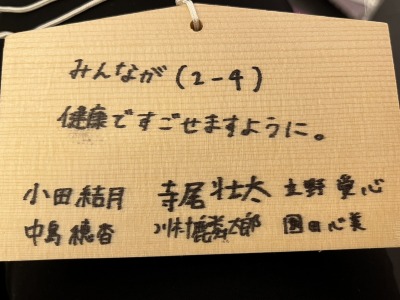 みんなが(2-4)
健康ですごせますように。
小田結月 寺尾壮太 立野愛心
中島穂香 川村麟太郎 園田心美